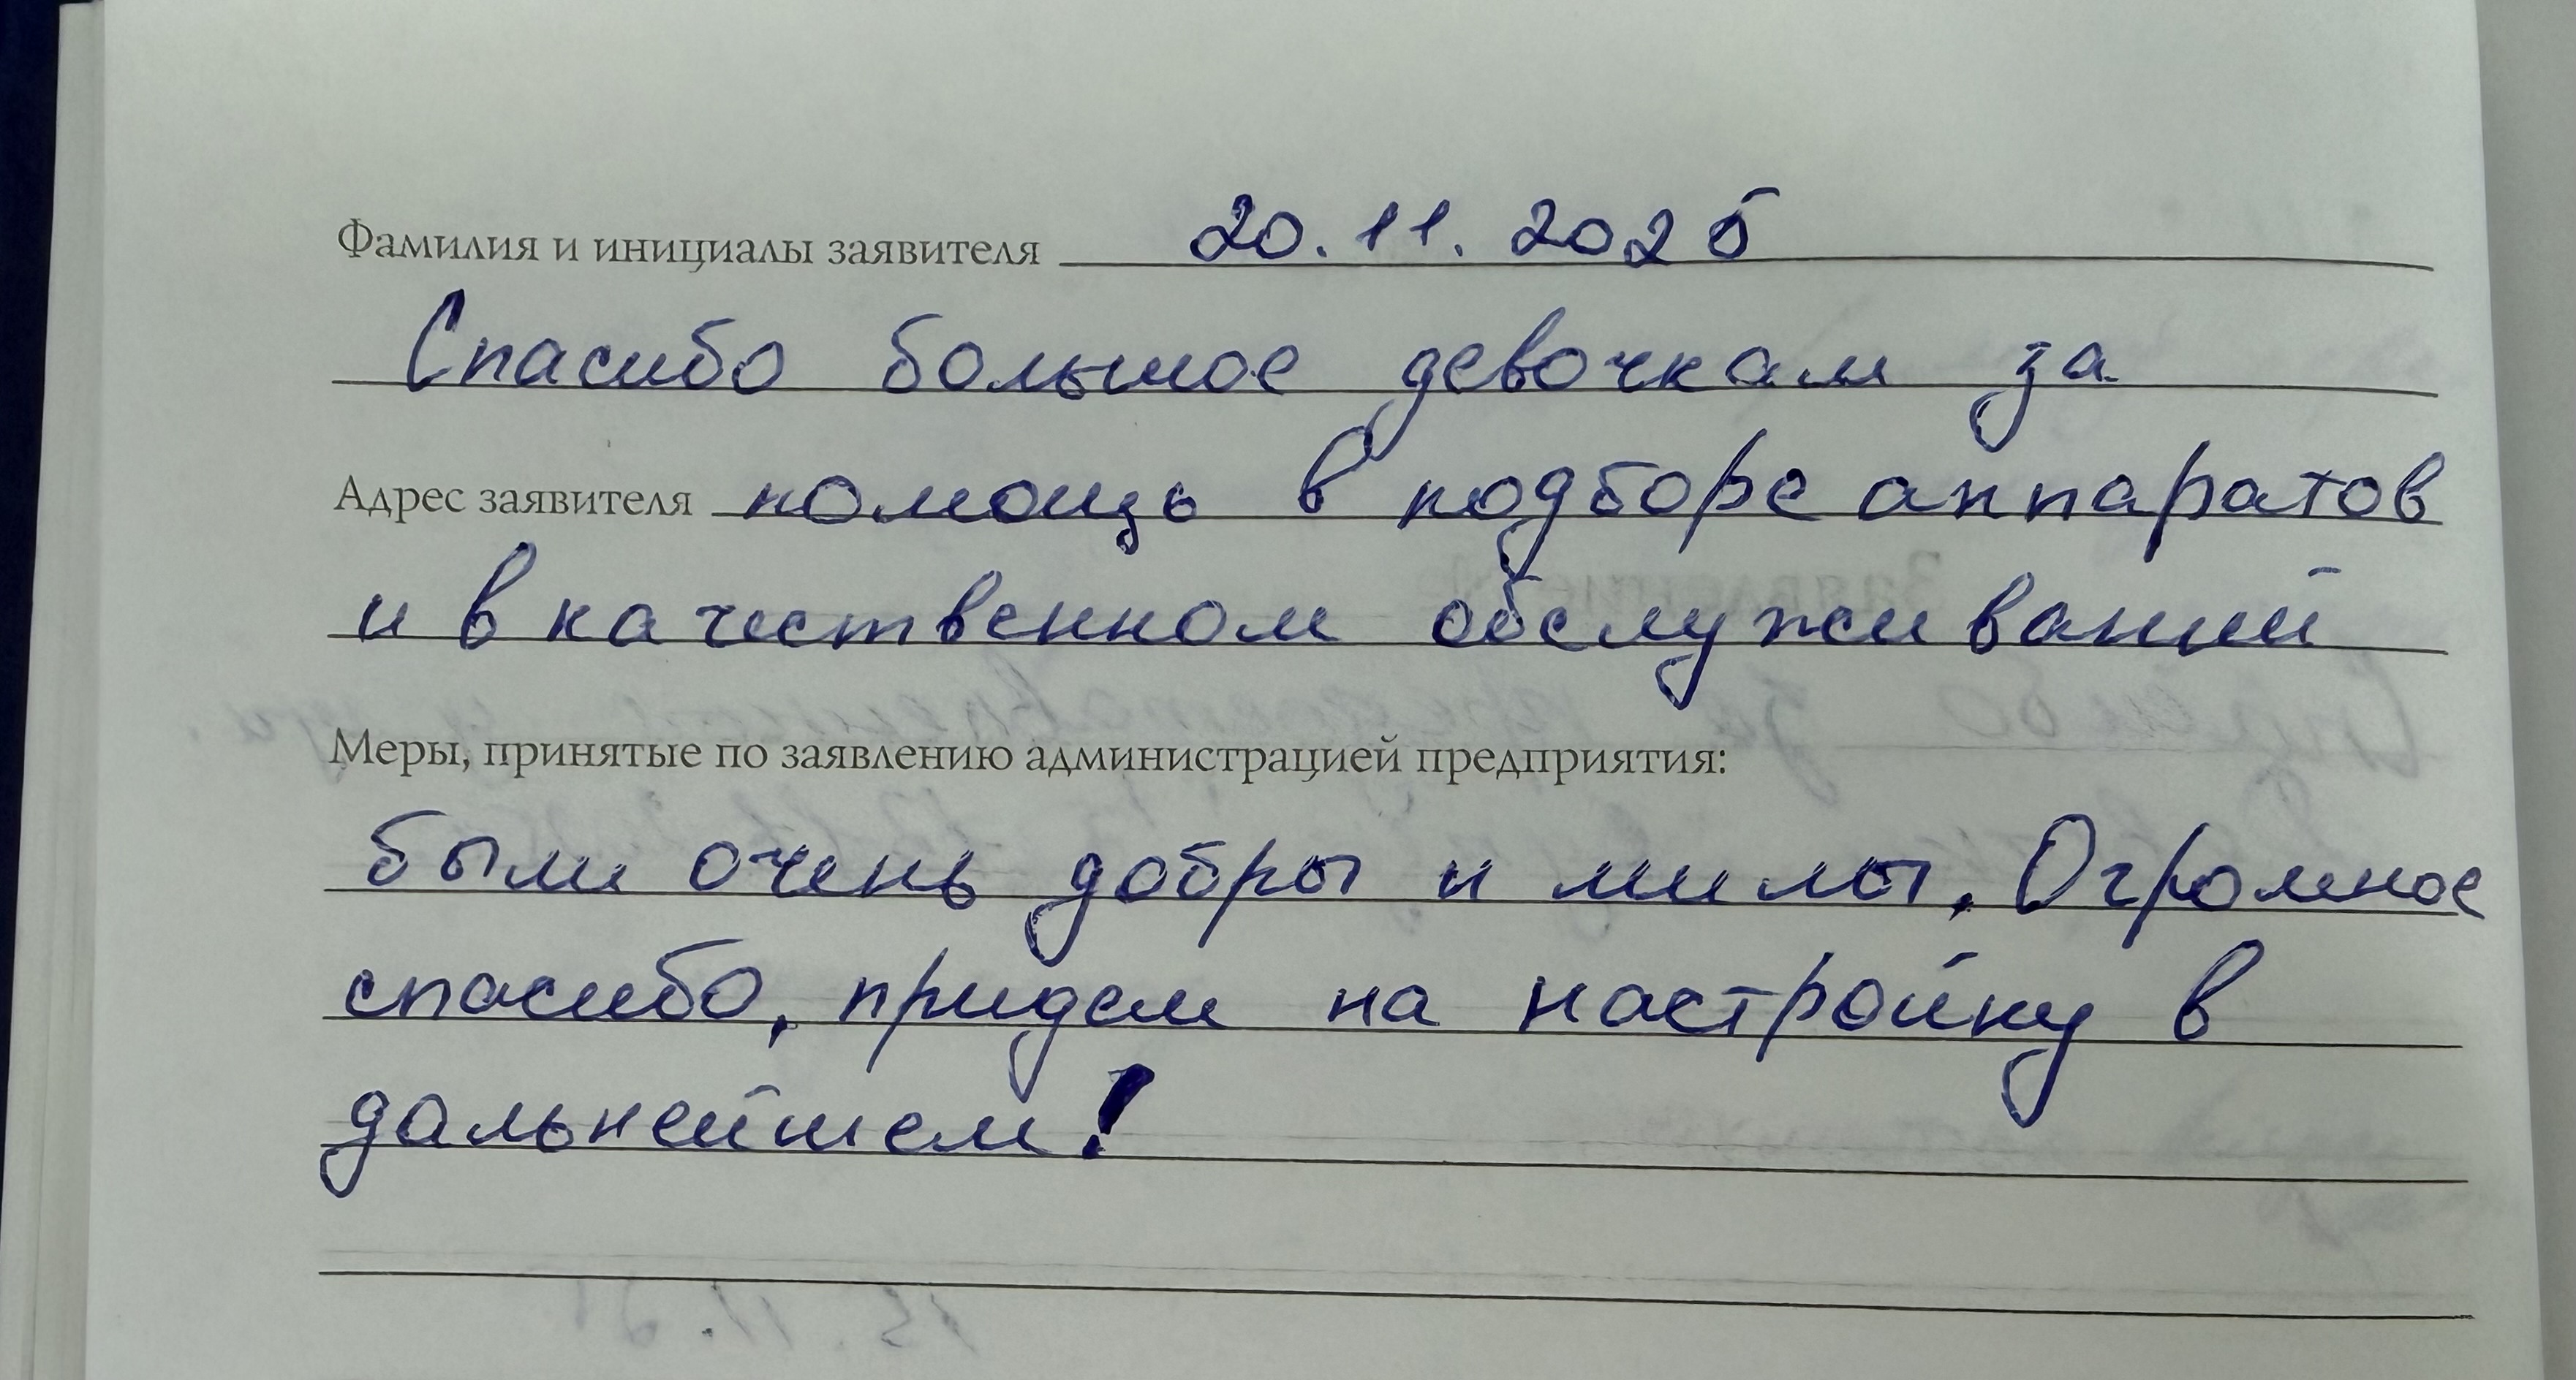 Фамилия и инициалы заявителя 20.11.2025
Спасибо большое девочкам за
Адрес заявителя помощь в подборе аппаратов
и в качественном обслуживаний
Меры, принятые по заявлению администрацией предприятия:
были очень добры и милы. Огромное
спасибо, придем на настройку в
дальнейшем!